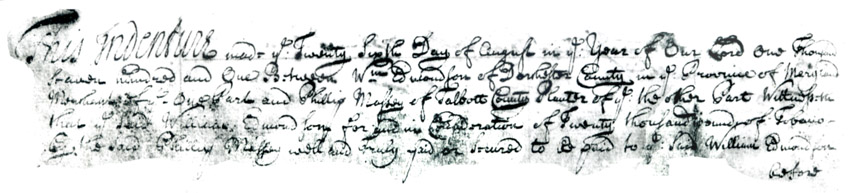 This Indenture made ye Twenty Sixth Day of August in ye Year of Our Lord One Thousand
Seaven Hundred and One Between Wm Edmondson of Dorchester County in ye Province of Maryland
Merchant of ye One Part and Phillip Massey of Talbott County Planter of ye the other Part Wittnesseth
that ye Said William Edmondson for and in Consideration of Twenty thousand pounds of Tobacco
the Said Phillip Massey well and truly paid or Secured to be paid to ye Said William Edmondson
before